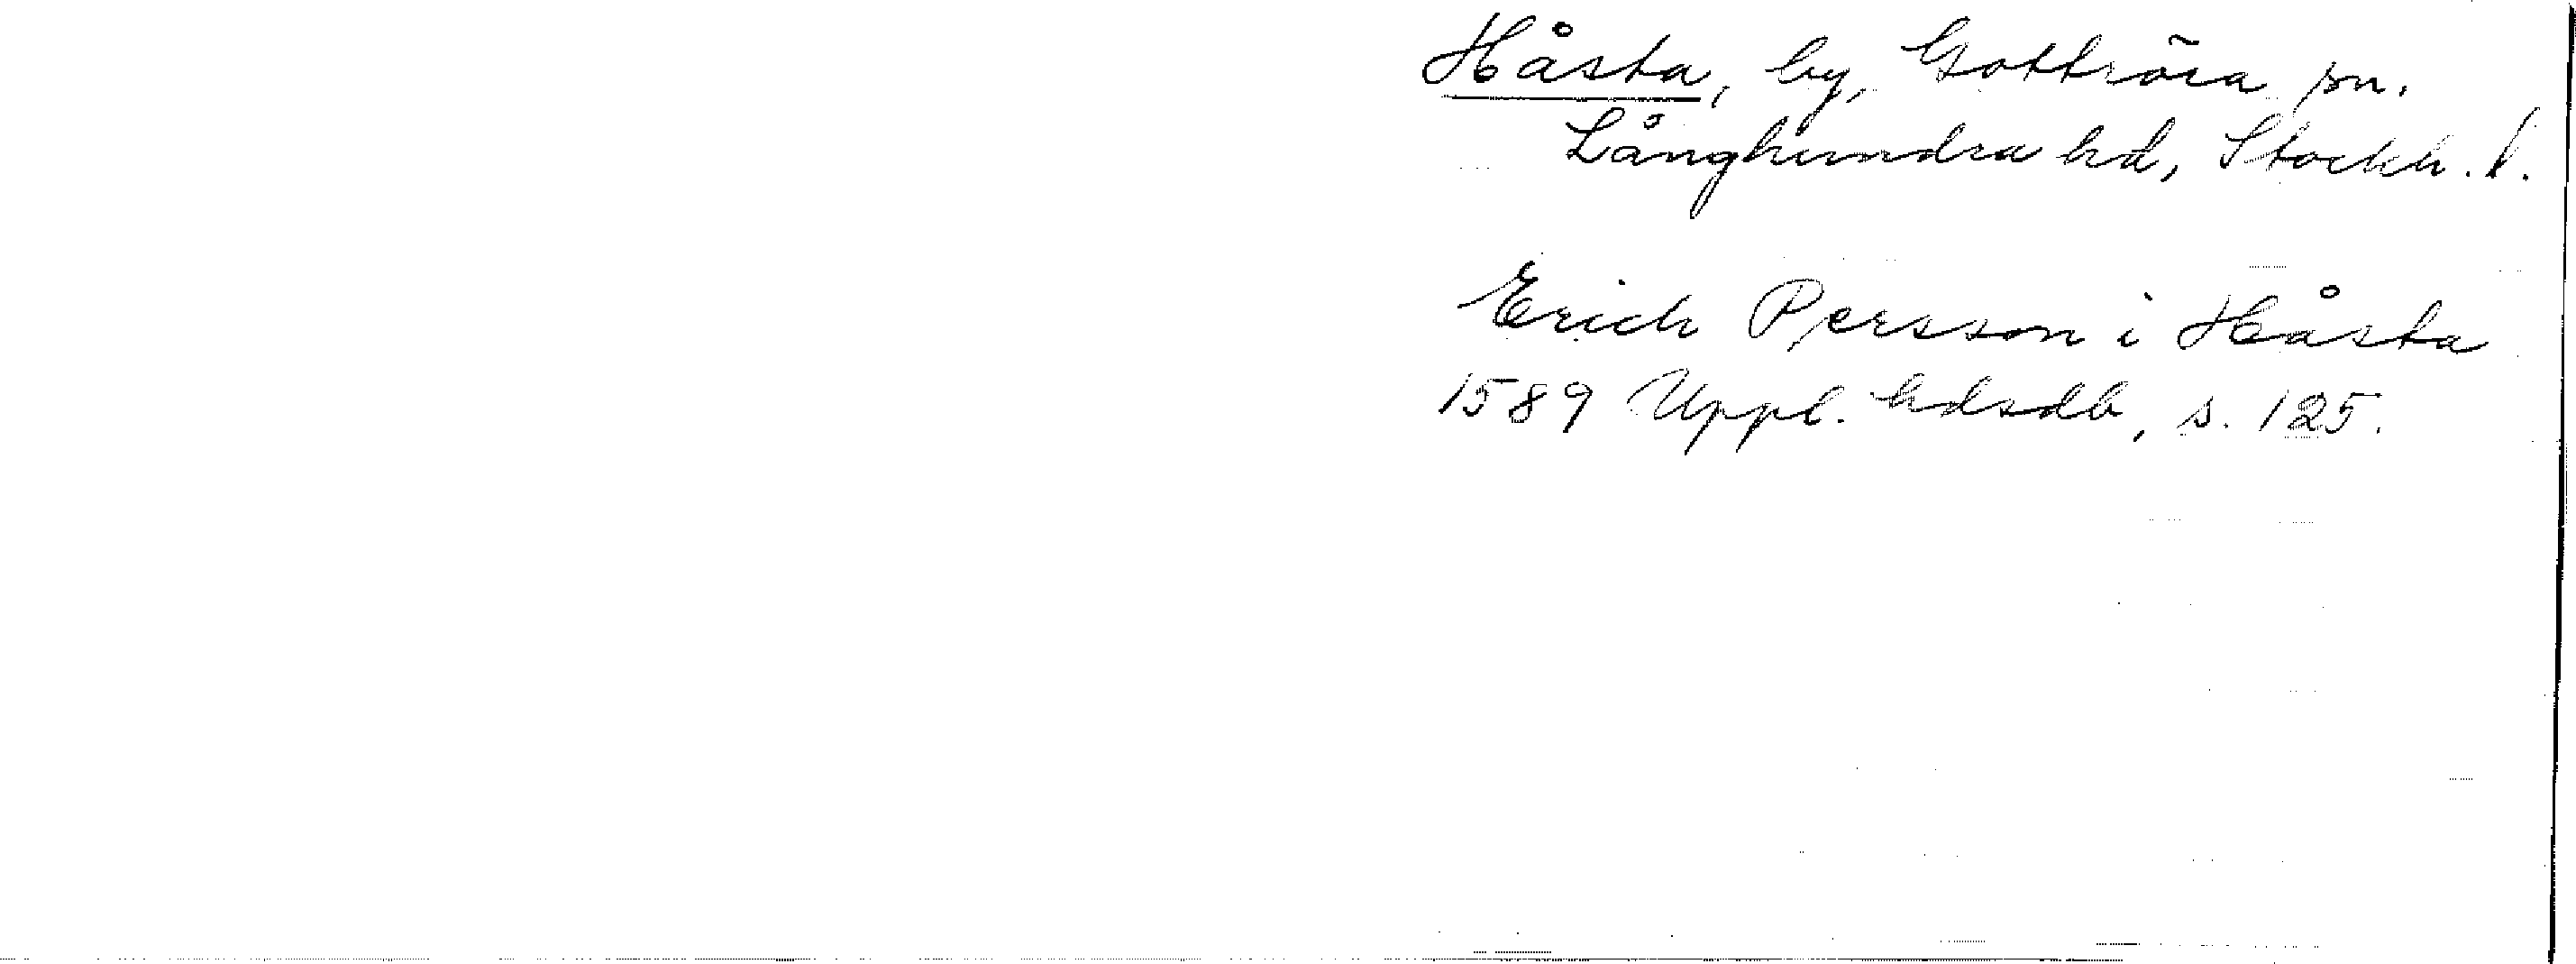 Håsta, by, Gottröra sn.
Långhundra hd, Stockh. l.
Erich Persson i Håsta
1589 Uppl. hdsdb, s. 125.